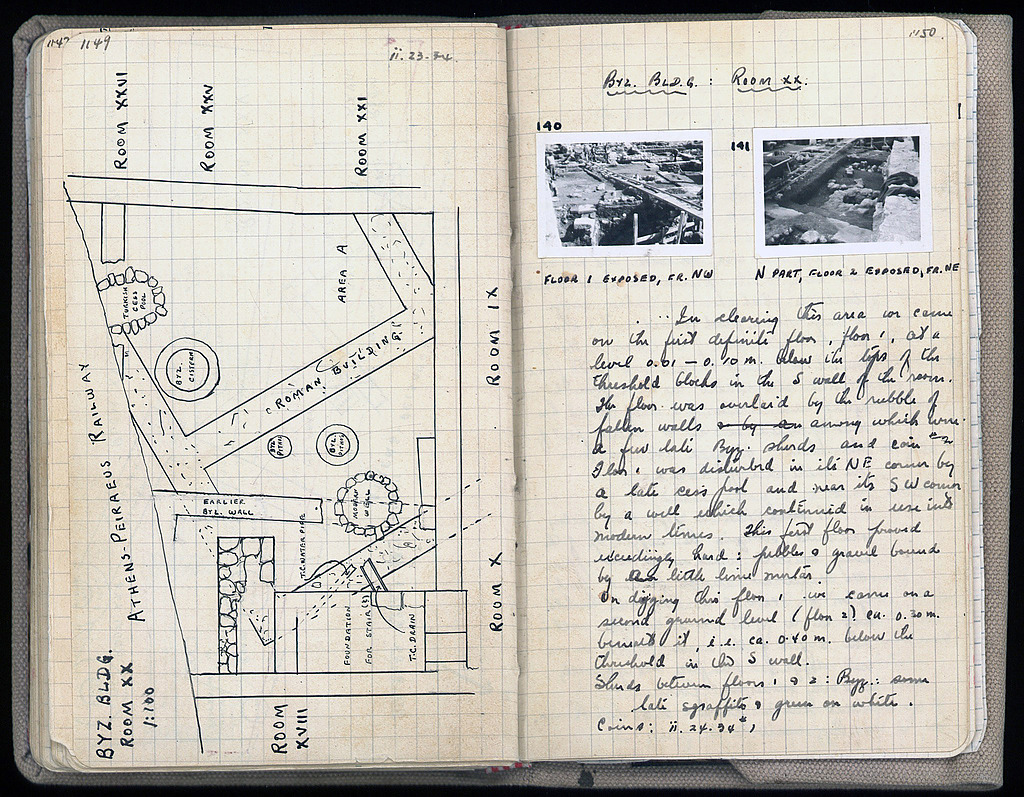 1147 1149
ii. 23-34
ROOM XXVI
ROOM XXV
ROOM XXI
TURKISH
CESS
POOL
AREA A
BYZ.
CISTERN
ROMAN BUILDING
BYZ.
PITHOS
BYZ.
PITHOS
ROOM IX
ATHENS-PEIRAEUS RAILWAY
EARLIER
BYZ. WALL
MODERN
WELL
T.C. WATER PIPE
FOUNDATION
FOR STAIR(?)
T.C. DRAIN
ROOM X
BYZ. BLDG.
ROOM XX
1:100
ROOM
XVIII
1150
BYZ. BLDG. : ROOM XX.
140
141
FLOOR 1 EXPOSED, FR. NW
N PART, FLOOR 2 EXPOSED, FR. NE
In clearing this area we came
on the first definite floor, floor 1, at a
level 0.01 – 0.10 m. below the tops of the
threshold blocks in the S wall of the room.
The floor was overlaid by the rubble of
fallen walls among which were
a few late Byz. sherds and coin #2
Floor 1 was disturbed in its NE corner by
a late cess pool and near its SW corner
by a well which continued in use into
modern times. This first floor proved
exceedingly hard: pebbles & gravel bound
by little lime mortar.
On digging this floor 1, we came on a
second ground level (floor 2) ca. 0.30 m.
beneath it, i.e. ca. 0.40 m. below the
threshold in the S wall.
Sherds between floors 1 & 2: Byz.: some
late sgraffito & green on white.
Coins: ii. 24-34 #1